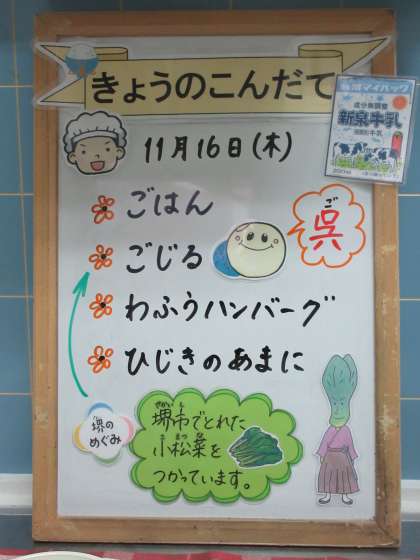 きょうのこんだて
11月16日(木)
ごはん
ごじる
ご
呉
わふうハンバーグ
ひじきのあまに
堺の
めぐみ
堺市でとれた
小松菜を
つかっています。
成分無調整
新泉牛乳